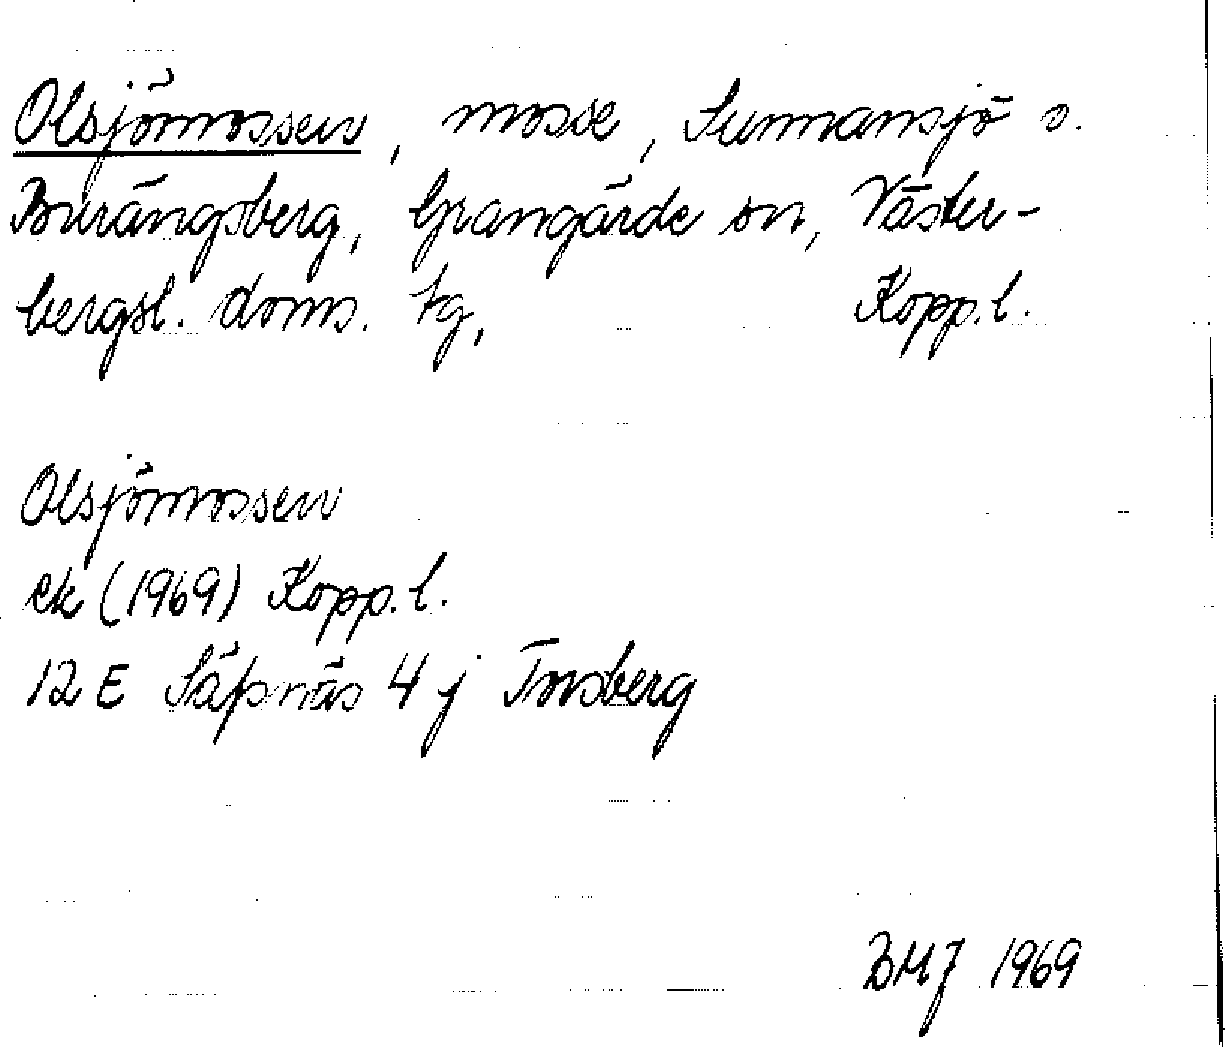 Olsjömossen, mosse, Sunnansjö o.
Burängsberg, Grangärde sn, Väster-
bergsl. doms. tg, Kopp. l.
Olsjömossen
ek (1969) Kopp. l.
12 E Säfsnäs 4 j Tnsberg
BMJ 1969